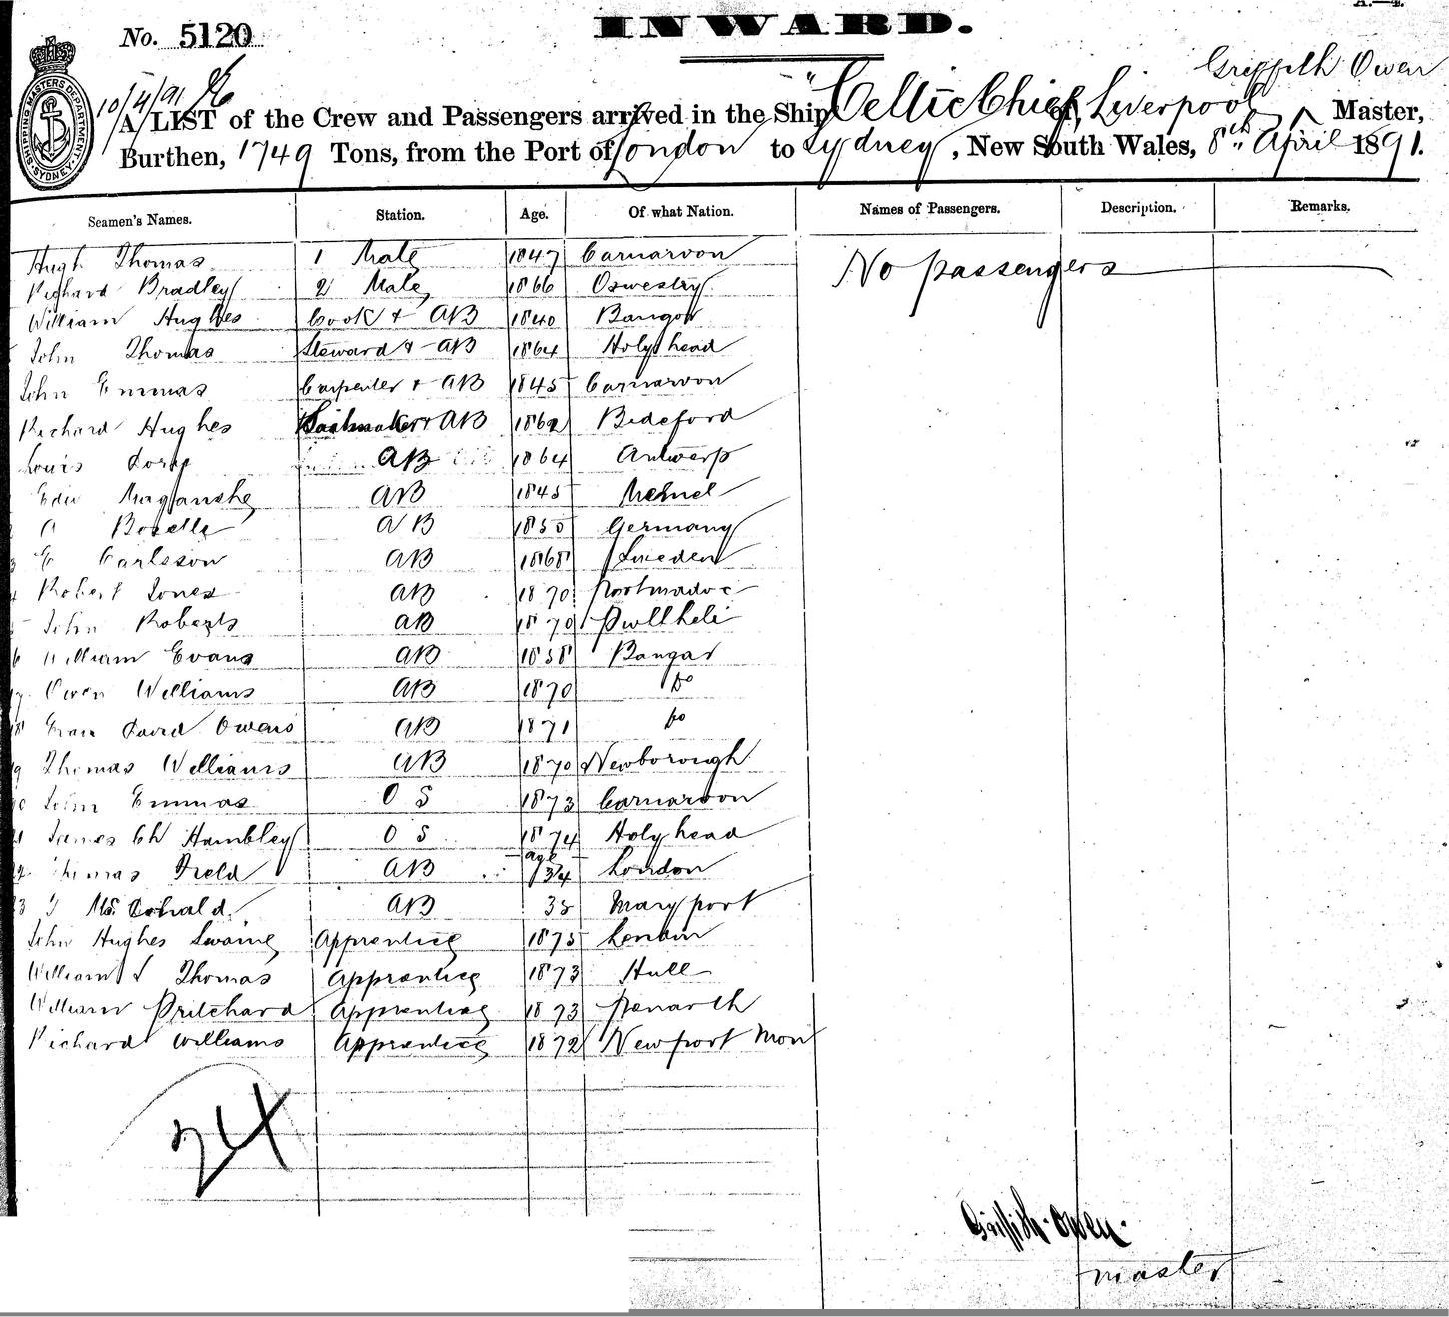 A.—4.
INWARD.
No. 5120
SHIPPING MASTERS DEPARTMENT SYDNEY
10/4/91
Griffith Owen
A LIST of the Crew and Passengers arrived in the Ship "Celtic Chief of, Liverpool Master,
Burthen, 1749 Tons, from the Port of London to Sydney, New South Wales, 8th April 1891.
Seamen's Names. Station. Age. Of what Nation. Names of Passengers. Description. Remarks.
Hugh Thomas 1 Mate 1847 Carnarvon No passengers
Richard Bradley 2 Mate 1866 Oswestry
William Hughes Cook & AB 1840 Bangor
John Thomas Steward & AB 1864 Holyhead
John Emmas Carpenter & AB 1845 Carnarvon
Richard Hughes Sailmaker & AB 1862 Bideford
Louis AB 1864 Antwerp
AB 1845 Memel
AB 1850 Germany
3 E Carlsson AB 1868 Sweden
4 Robert Jones AB 1870 Portmadoc
5 John Roberts AB 1870 Pwllheli
6 William Evans AB 1858 Bangor
17 Owen Williams AB 1870 Do
18 Evan David Owens AB 1871 Do
19 Thomas Williams AB 1870 Newborough
20 John Emmas O S 1873 Carnarvon
21 James Ch Hambley O S 1874 Holyhead
22 Thomas Field AB age 34 London
23 McDonald AB 35 Maryport
John Hughes Swaine Apprentice 1875 London
William Thomas Apprentice 1873 Hull
William Pritchard Apprentice 1873 Penarth
Richard Williams Apprentice 1872 Newport Mon
24
Griffith Owen
master